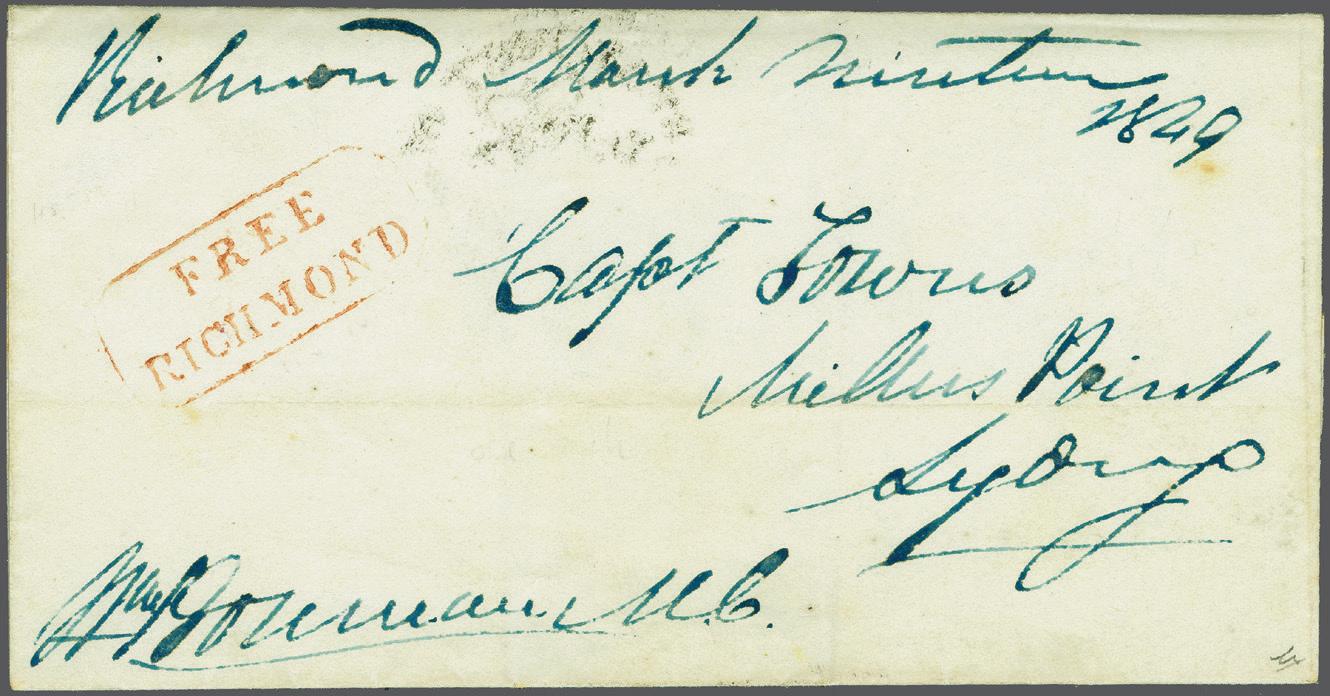 Richmond March nineteen
1849
FREE
RICHMOND
Capt Towns
Millers Point
Sydney
Wm Bowman M.C.